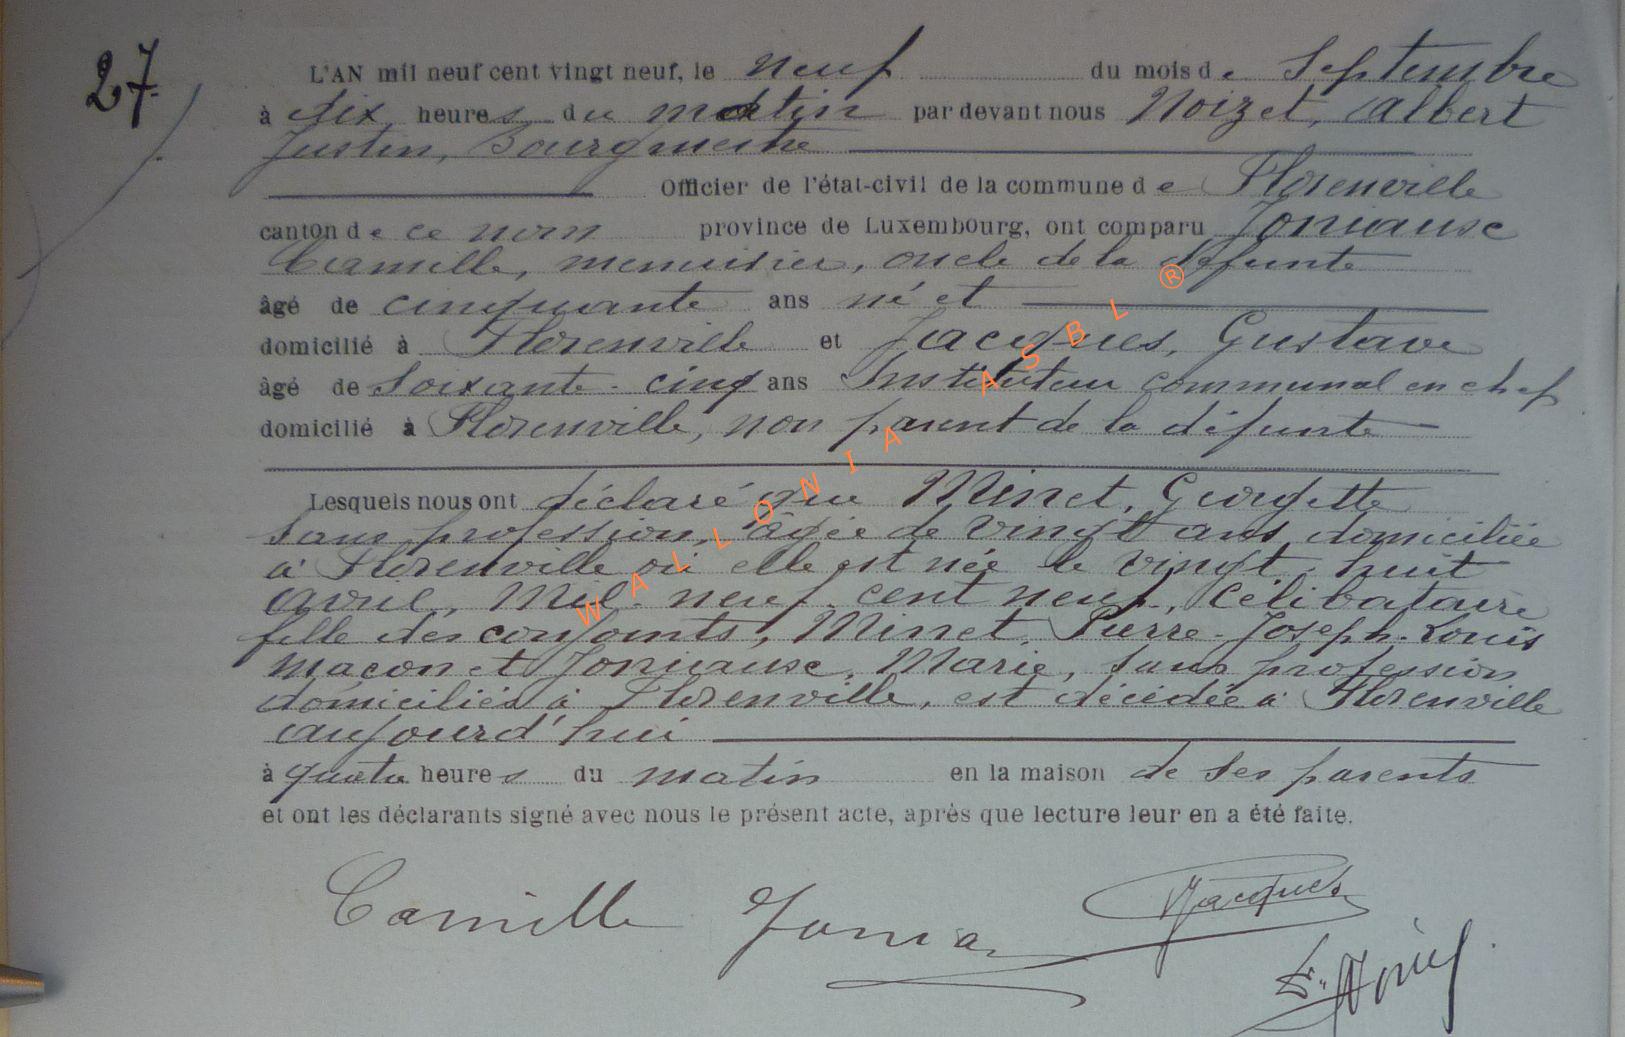 27
L'AN mil neuf cent vingt neuf, le neuf du mois de Septembre
à dix heures du matin par devant nous Noizet, Albert
Justin, Bourgmestre
Officier de l'état-civil de la commune de Florenville
canton de ce nom province de Luxembourg, ont comparu Joniause
Camille, menuisier, oncle de la défunte
âgé de cinquante ans né et
domicilié à Florenville et Jacques, Gustave
âgé de soixante-cinq ans Instituteur communal en chef
domicilié à Florenville, non parent de la défunte
Lesquels nous ont déclaré que Minet, Georgette
sans profession, âgée de vingt ans domiciliée
à Florenville où elle est née le vingt-huit
avril, Mil-neuf-cent neuf, célibataire
fille des conjoints, Minet, Pierre-Joseph-Louis
maçon et Joniause, Marie, sans profession
domiciliés à Florenville, est décédée à Florenville
aujourd'hui
à quatre heures du matin en la maison de ses parents
et ont les déclarants signé avec nous le présent acte, après que lecture leur en a été faite.
Camille Jonia
GJacques
WALLONIA ASBL ®